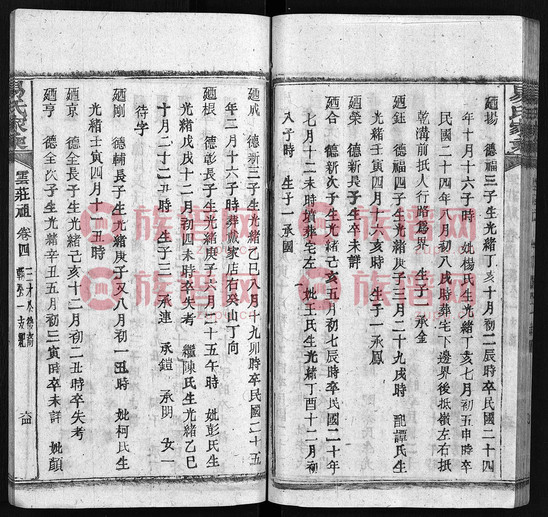 廼揚 德福三子生光緒丁亥十月初二辰時卒民國二十四
年十月十六子時 妣楊氏生光緒丁亥七月初五申時卒
民國二十四年八月初八戌時葬宅下邊界後抵嶺左右抵
乾溝前抵人行路為界 生子一 承金
廼鈺 德福四子生光緒庚子三月二十九戌時 配譚氏生
光緒壬寅四月十六亥時 生子一承鳳
廼榮 德新長子生卒未詳
廼合 德新次子生光緒己亥五月初七辰時卒民國二十年
七月十二未時墳葬宅左 妣王氏生光緒丁酉十二月初
八子時 生子一承國
易氏家乘
雲莊祖 卷四
廼成 德新三子生光緒乙巳八月十九卯時卒民國二十五
年二月十六子時葬戴家店右癸山丁向
廼根 德彰長子生光緒庚子六月二十五午時 妣彭氏生
光緒戊戌十二月初四未時卒失考 繼陳氏生光緒乙巳
十月二十二丑時 生子三承連 承鎧 承明 女一
待字
廼剛 德輔長子生光緒庚子又八月初一丑時 妣柯氏生
光緒壬寅四月十五時
廼京 德全長子生光緒己亥十二月初二丑時卒失考
廼亨 德全次子生光緒辛丑五月初三寅時卒未詳 妣顏
族譜网